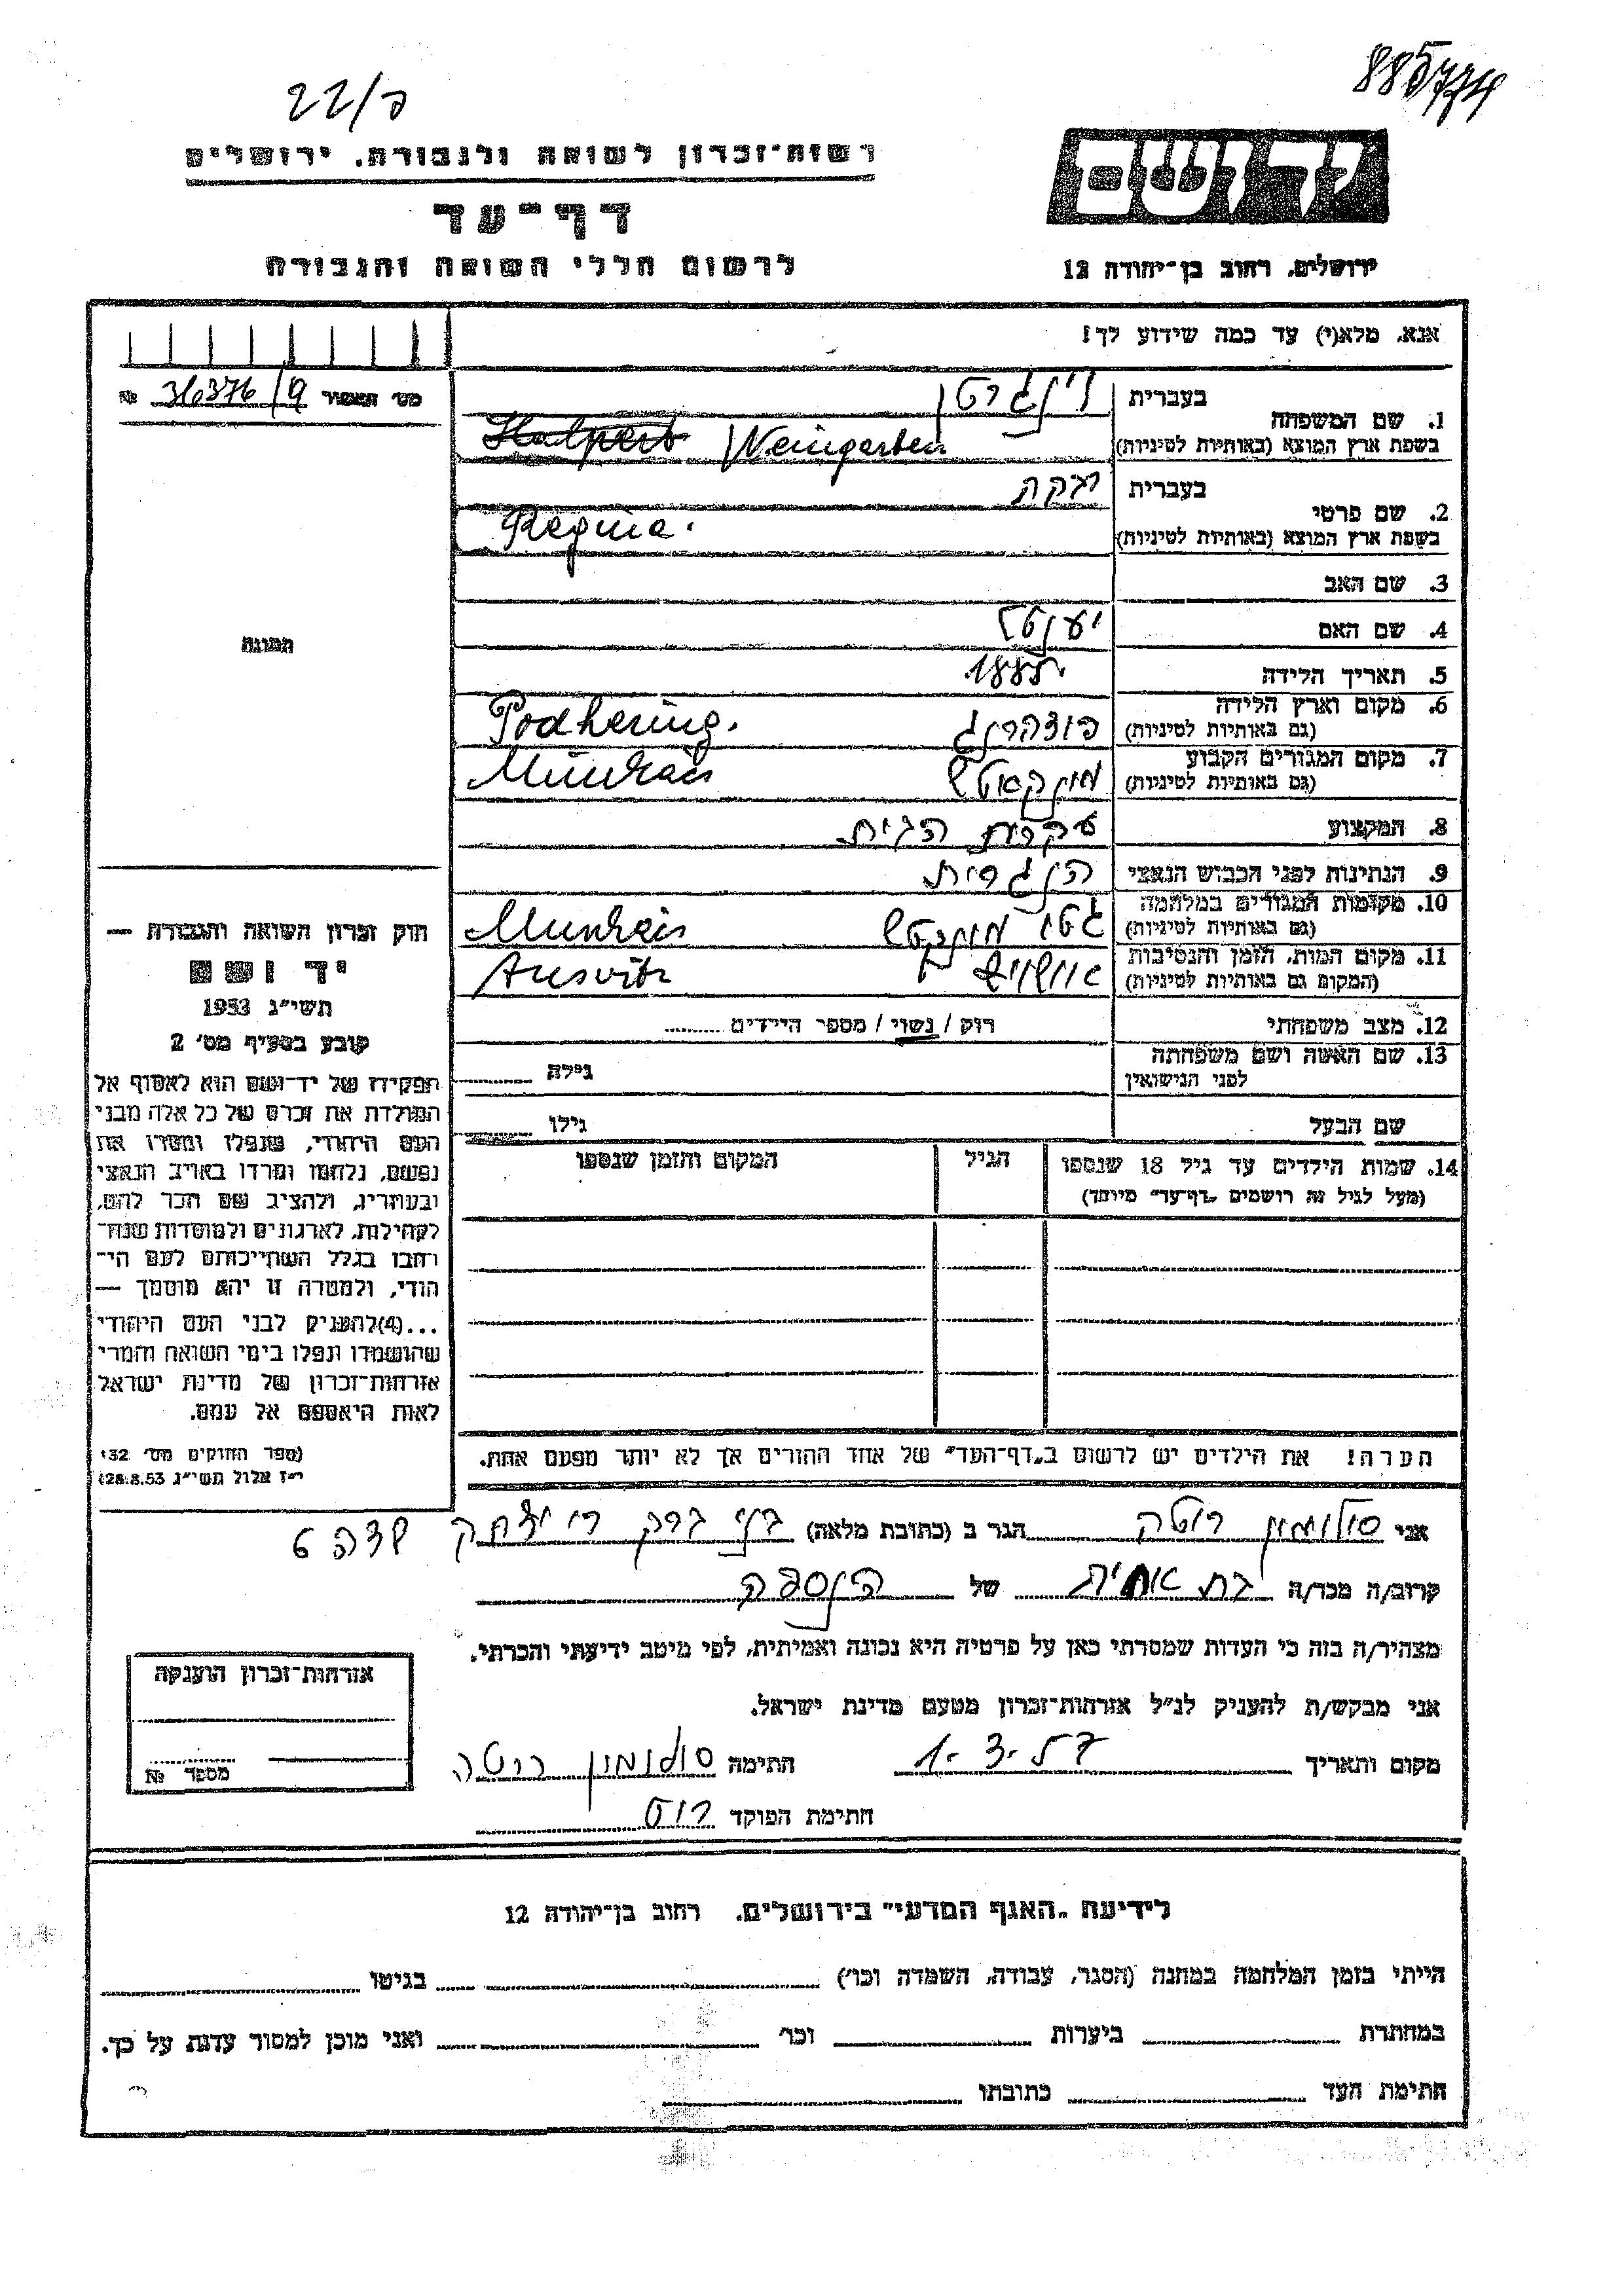 885774
22/ר
רשות-זכרון לשואה ולגבורה. ירושלים
ידושם
דף-עד
ירושלים. רחוב בן-יהודה 12
לרשום חללי השואה והגבורה
אנא. מלא(י) עד כמה שידוע לך!
מס' האשור 36376/9 №
1. שם המשפחה בעברית וינגרטן
בשפת ארץ המוצא (באותיות לטיניות) Halpert Weingarten
2. שם פרטי בעברית רבקה
בשפת ארץ המוצא (באותיות לטיניות) Regina.
3. שם האב
4. שם האם יענטל
5. תאריך הלידה 1885
6. מקום וארץ הלידה Podhering.
(גם באותיות לטיניות)
7. מקום המגורים הקבוע מונקאטש Munkács
(גם באותיות לטיניות)
8. המקצוע עקרת הבית
9. הנתינות לפני הכבוש הנאצי הונגרית
10. מקומות המגורים במלחמה גטו מונקטש Munkács
(גם באותיות לטיניות)
11. מקום המות, הזמן והנסיבות אושויץ Ausvitz
(המקום גם באותיות לטיניות)
12. מצב משפחתי רוק / נשוי / מספר הילדים
13. שם האשה ושם משפחתה גילה
לפני הנישואין
שם הבעל גילו
14. שמות הילדים עד גיל 18 שנספו הגיל המקום והזמן שנספו
(מעל לגיל זה רושמים „דף-עד" מיוחד)
הערה! את הילדים יש לרשום ב„דף-העד" של אחד ההורים אך לא יותר מפעם אחת.
תמונה
חוק זכרון השואה והגבורה —
יד ושם
תשי"ג 1953
קובע בסעיף מס' 2
תפקידו של יד-ושם הוא לאסוף אל
המולדת את זכרם של כל אלה מבני
העם היהודי, שנפלו ומסרו את
נפשם, נלחמו ומרדו באויב הנאצי
ובעוזריו, ולהציב שם וזכר להם,
לקהילות, לארגונים ולמוסדות שנח-
רבו בגלל השתייכותם לעם הי-
הודי, ולמטרה זו יהא מוסמך —
...(4)להעניק לבני העם היהודי
שהושמדו ונפלו בימי השואה והמרי
אזרחות-זכרון של מדינת ישראל
לאות היאספם אל עמם.
(ספר החוקים מס' 132
י"ז אלול תשי"ג 28.8.53)
אני סולומון רוטה הגר ב (כתובת מלאה) בני ברק ר' יצחק שדה 6
קרוב/ה מכר/ה בת אחות של הנספה
מצהיר/ה בזה כי העדות שמסרתי כאן על פרטיה היא נכונה ואמיתית, לפי מיטב ידיעתי והכרתי.
אני מבקש/ת להעניק לנ"ל אזרחות-זכרון מטעם מדינת ישראל.
מקום ותאריך 1.3.57 חתימה סולומון רוטה
חתימת הפוקד
אזרחות-זכרון הוענקה
מספר №
לידיעת „האגף המדעי" בירושלים. רחוב בן-יהודה 12
הייתי בזמן המלחמה במחנה (הסגר, עבודה, השמדה וכו') בגיטו
במחתרת ביערות וכו' ואני מוכן למסור עדות על כך.
חתימת העד כתובתו